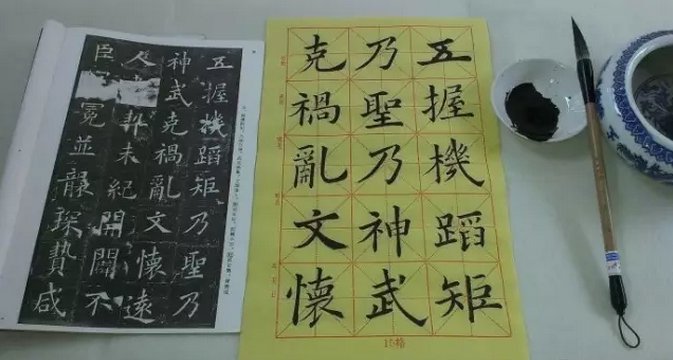 五握機蹈矩乃聖乃
神武克禍亂文懷遠
人卦未紀開闢不
臣冕並襲琛贄咸
五握機蹈矩
乃聖乃神武
克禍亂文懷
15格